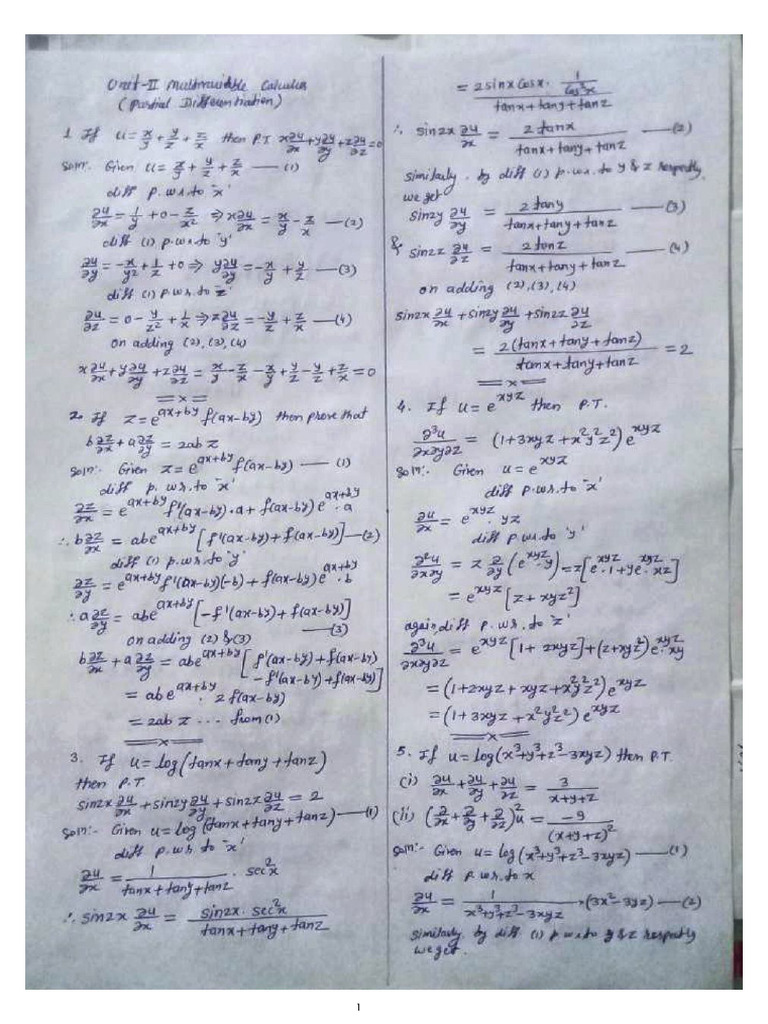 Unit-II Multivariable Calculus
(Partial Differentiation)
1. If u = x/y + y/z + z/x then P.T. x ∂u/∂x + y ∂u/∂y + z ∂u/∂z = 0
Soln:- Given u = x/y + y/z + z/x —— (1)
diff p.w.r.to 'x'
∂u/∂x = 1/y + 0 - z/x² ⇒ x ∂u/∂x = x/y - z/x —— (2)
diff (1) p.w.r.to 'y'
∂u/∂y = -x/y² + 1/z + 0 ⇒ y ∂u/∂y = -x/y + y/z —— (3)
diff (1) p.w.r.to 'z'
∂u/∂z = 0 - y/z² + 1/x ⇒ z ∂u/∂z = -y/z + z/x —— (4)
on adding (2), (3), (4)
x ∂u/∂x + y ∂u/∂y + z ∂u/∂z = x/y - z/x - x/y + y/z - y/z + z/x = 0
== x ==
2. If z = e^(ax+by) f(ax-by) then prove that
b ∂z/∂x + a ∂z/∂y = 2ab z
Soln:- Given z = e^(ax+by) f(ax-by) —— (1)
diff p.w.r.to 'x'
∂z/∂x = e^(ax+by) f'(ax-by)·a + f(ax-by) e^(ax+by)·a
∴ b ∂z/∂x = abe^(ax+by) [f'(ax-by) + f(ax-by)] —(2)
diff (1) p.w.r.to 'y'
∂z/∂y = e^(ax+by) f'(ax-by)(-b) + f(ax-by) e^(ax+by)·b
∴ a ∂z/∂y = abe^(ax+by) [-f'(ax-by) + f(ax-by)]
on adding (2) & (3) —— (3)
b ∂z/∂x + a ∂z/∂y = abe^(ax+by) [f'(ax-by) + f(ax-by)
- f'(ax-by) + f(ax-by)]
= abe^(ax+by)·2f(ax-by)
= 2ab z ... from (1)
== x ==
3. If u = log(tanx + tany + tanz)
then P.T.
sin2x ∂u/∂x + sin2y ∂u/∂y + sin2z ∂u/∂z = 2
Soln:- Given u = log(tanx + tany + tanz) —— (1)
diff p.w.r.to 'x'
∂u/∂x = 1/(tanx + tany + tanz) · sec²x
∴ sin2x ∂u/∂x = sin2x · sec²x/(tanx + tany + tanz)
= 2sinx cosx · 1/cos²x/(tanx + tany + tanz)
∴ sin2x ∂u/∂x = 2tanx/(tanx + tany + tanz) —— (2)
similarly by diff (1) p.w.r.to y & z respectly
we get
sin2y ∂u/∂y = 2tany/(tanx + tany + tanz) —— (3)
& sin2z ∂u/∂z = 2tanz/(tanx + tany + tanz) —— (4)
on adding (2), (3), (4)
sin2x ∂u/∂x + sin2y ∂u/∂y + sin2z ∂u/∂z
= 2(tanx + tany + tanz)/(tanx + tany + tanz) = 2
== x ==
4. If u = e^(xyz) then P.T.
∂³u/∂x∂y∂z = (1 + 3xyz + x²y²z²) e^(xyz)
Soln:- Given u = e^(xyz)
diff p.w.r.to 'x'
∂u/∂x = e^(xyz)·yz
diff p.w.r.to 'y'
∂²u/∂x∂y = z ∂/∂y (e^(xyz)·y) = z[e^(xyz)·1 + ye^(xyz)·xz]
= e^(xyz) [z + xyz²]
again, diff p.w.r.to 'z'
∂³u/∂x∂y∂z = e^(xyz) [1 + 2xyz] + (z + xyz²) e^(xyz)·xy
= (1 + 2xyz + xyz + x²y²z²) e^(xyz)
= (1 + 3xyz + x²y²z²) e^(xyz)
== x ==
5. If u = log(x³ + y³ + z³ - 3xyz) then P.T.
(i) ∂u/∂x + ∂u/∂y + ∂u/∂z = 3/(x+y+z)
(ii) (∂/∂x + ∂/∂y + ∂/∂z)² u = -9/(x+y+z)²
Soln:- Given u = log(x³ + y³ + z³ - 3xyz) —— (1)
diff p.w.r.to x
∂u/∂x = 1/(x³ + y³ + z³ - 3xyz) · (3x² - 3yz) —(2)
similarly by diff (1) p.w.r.to y & z respectly
we get.
1